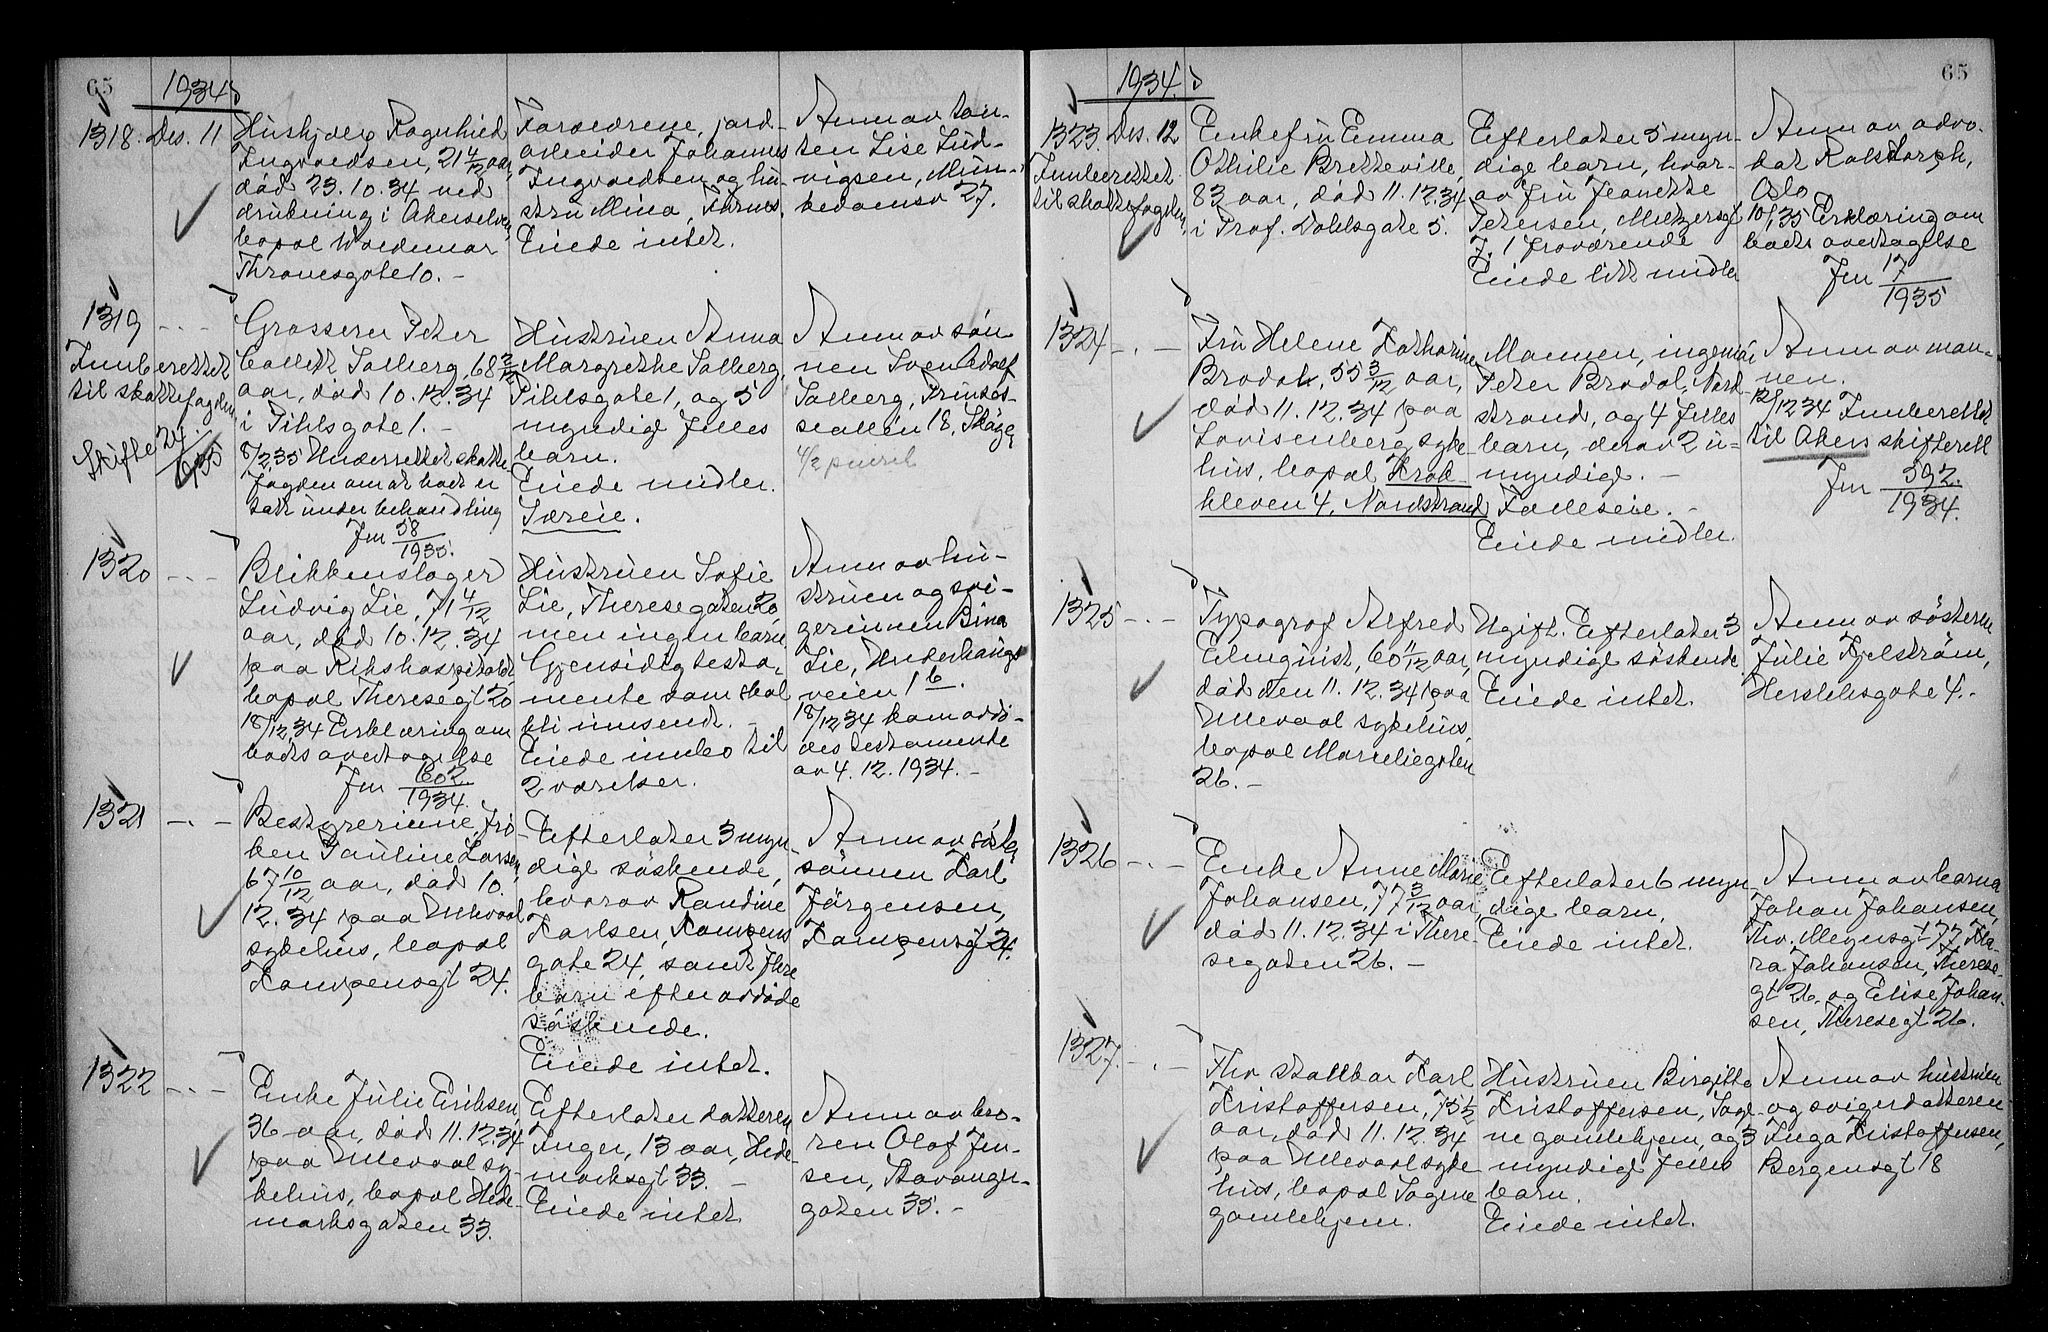 65
1934
1318. Des. 11
Hushjelp Ragnhild
Ingvaldsen, 21 4/12 aar,
død 23.10.34 ved
drukning i Akerselven,
bopæl Waldemar
Thranesgate 10. -
Forældrene, jord-
arbeider Johannes
Ingvaldsen og hu-
stru Mina,
Eiede intet.
Anm av tan-
ten Lise Lud-
vigsen, Mun-
kedamsv 27.
1319 - . -
Innberettet
til skattefogden,
Skifte 24.
6/35
Grosserer Peter
Collett Solberg, 68 2/12
aar, død 10.12.34
i Pihlsgate 1. -
8/2 35 Underrettet skatte-
fogden om at boet er
tatt under behandling
Jnr 58
1935.
Hustruen Anna
Margrethe Solberg,
Pihlsgate 1, og 5
myndige felles
barn.
Eiede midler.
Særeie.
Anm av søn
nen Sven Adolf
Solberg, Prinses-
sealléen 18, Skøyen
1320 - . -
Blikkenslager
Ludvig Lie, 71 4/12
aar, død 10.12.34
paa Rikshospitalet
bopæl Theresegt 20
18/12.34 Erklæring om
boets overtagelse
Jnr 602
1934.
Hustruen Sofie
Lie, Theresegaten 20,
men ingen barn.
Gjensidig testa-
mente som skal
bli innsendt. -
Eiede innbo til
2 værelser.
Anm av hu-
struen og svi-
gerinnen Bina
Lie, Underhaugs-
veien 1 b.
18/12 34 kom avdø-
des testamente
av 4.12.1934. -
1321 - . -
Bestyrerinne, frø-
ken Pauline Larsen,
67 10/12 aar, død 10.
12.34 paa Ullevaal
sykehus, bopæl
Kampensgt 24.
Efterlater 3 myn-
dige søskende,
hvorav Randine
Karlsen, Kampens
gate 24, samt flere
barn efter avdøde
søskende.
Eiede intet.
Anm av søster
sønnen Karl
Jørgensen,
Kampensgt 24.
1322 - . -
Enke Julie Eriksen,
36 aar, død 11.12.34
paa Ullevaal sy-
kehus, bopæl Hede-
marksgaten 33.
Efterlater datteren
Inger, 13 aar, Hede-
marksgt 33. -
Eiede intet
Anm av bro-
ren Olaf Jen-
sen, Stavanger-
gaten 35. -
65
1934.
1323. Des. 12
Innberettet
til skattefogden,
Enkefru Emma
Othilie Bretteville,
83 aar, død 11.12.34
i Prof. Dahlsgate 5.
Efterlater 5 myn-
dige barn, hvor-
av fru Jeanette
Petersen, Meltzersgt
7. 1 fraværende
Eiede litt midler
Anm av advo-
kat Rolstorph,
Oslo
10/1 35 Erklæring om
boets overtagelse
Jnr 17
1935
1324 - . -
Fru Helene Katharine
Brodal, 55 3/12 aar,
død 11.12.34 paa
Lovisenberg syke-
hus, bopæl Krok-
kleven 4, Nordstrand
Mannen, ingeniør
Peter Brodal, Nord-
strand, og 4 felles
barn, derav 2 u-
myndige. -
Fælleseie. -
Eiede midler.
Anm av man-
nen.
12/12 34 Innberettet
til Akers skifterett
Jnr 592.
1934.
1325 - . -
Typograf Alfred
Elmquist, 60 11/12 aar,
død den 11.12.34 paa
Ullevaal sykehus,
bopæl Marieliegaten
26. -
Ugift. Efterlater 3
myndige søskende.
Eiede intet.
Anm av søsteren
Julie Fjelstrøm,
Herslebsgate 4. -
1326 - . -
Enke Anne Marie
Johansen, 77 3/12 aar,
død 11.12.34 i There-
segaten 26. -
Efterlater 6 myn-
dige barn.
Eiede intet.
Anm av barna
Johan Johansen,
Thv. Meyersgt 77, Kla-
ra Johansen, Therese-
gt 26. og Elise Johan-
sen, Theresegt 26.
1327. - . -
Fhv stallkar Karl
Kristoffersen, 75 1/2
aar, død 11.12.34
paa Ullevaal syke
hus, bopæl Sagene
gamlehjem.
Hustruen Birgitte
Kristoffersen, Sage-
ne gamlehjem, og 3
myndige felles
barn.
Eiede intet.
Anm av hustruen
og svigerdatteren
Inga Kristoffersen,
Bergensgt 18